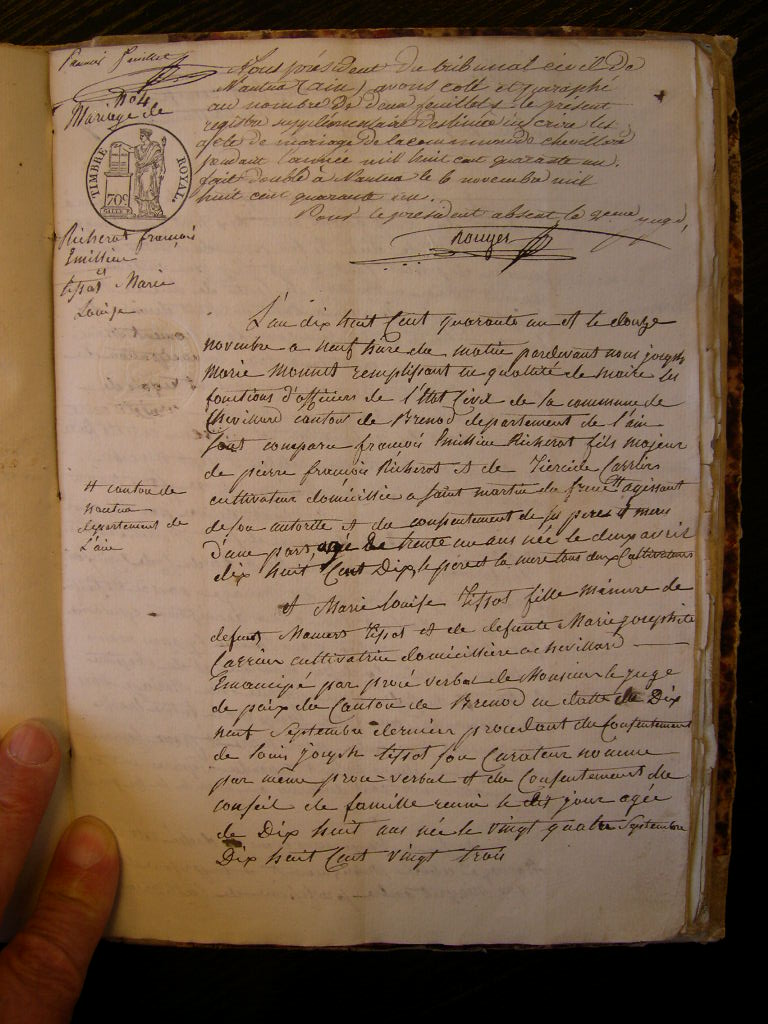 Premier feuillet
Nous président du tribunal civil de
Nantua (ain) avons coté et paraphé
au nombre de deux feuillets le present
registre supplémentaire destiné a inscrire les
acte de mariage de la commune de chevillard
pendant l'année mil huit cent quarante un.
fait double à Nantua le 6 novembre mil
huit cent quarante un.
Pour le président absent, le juge,
Rouyer
N° 4
Mariage de
TIMBRE ROYAL
70c
Richerot françois
Emillien
et
tissot Marie
Louise
L'an dix huit Cent quarante un et le douze
novembre a neuf hure du matin pardevant nous joseph
Marie Monnet remplissant en qualité de maire les
fonctions d'officiers de l'Etat Civil de la commune de
Chevillard canton de Brenod departement de l'ain
sont comparu françois Emillien Richerot fils majeur
de pierre françois Richerot et de Carrier
cultivateur domicillié a saint martin du frene # agissant
de son autorité et du consentement de ses peres et mere
d'une part, agé de trente un ans née le deux avril
dix huit Cent Dix, le père et la mere tous deux Cultivateurs
# canton de
nantua
departement de
L'ain
et Marie Louise Tissot fille mineure de
defunt tissot et de defunte Marie josephte
Carrier cultivatrice domicillière a chevillard
Emancipé par procé verbal de Monsieur le juge
de paix du Canton de Brenod en datte du Dix
neuf Septembre dernier procedant du Consentement
de louis joseph tissot son Curateur nomme
par même proce-verbal et du Consentement du
conseil de famille reuni le dit jour agée
de Dix huit ans née le vingt quatre Septembre
Dix huit Cent vingt trois